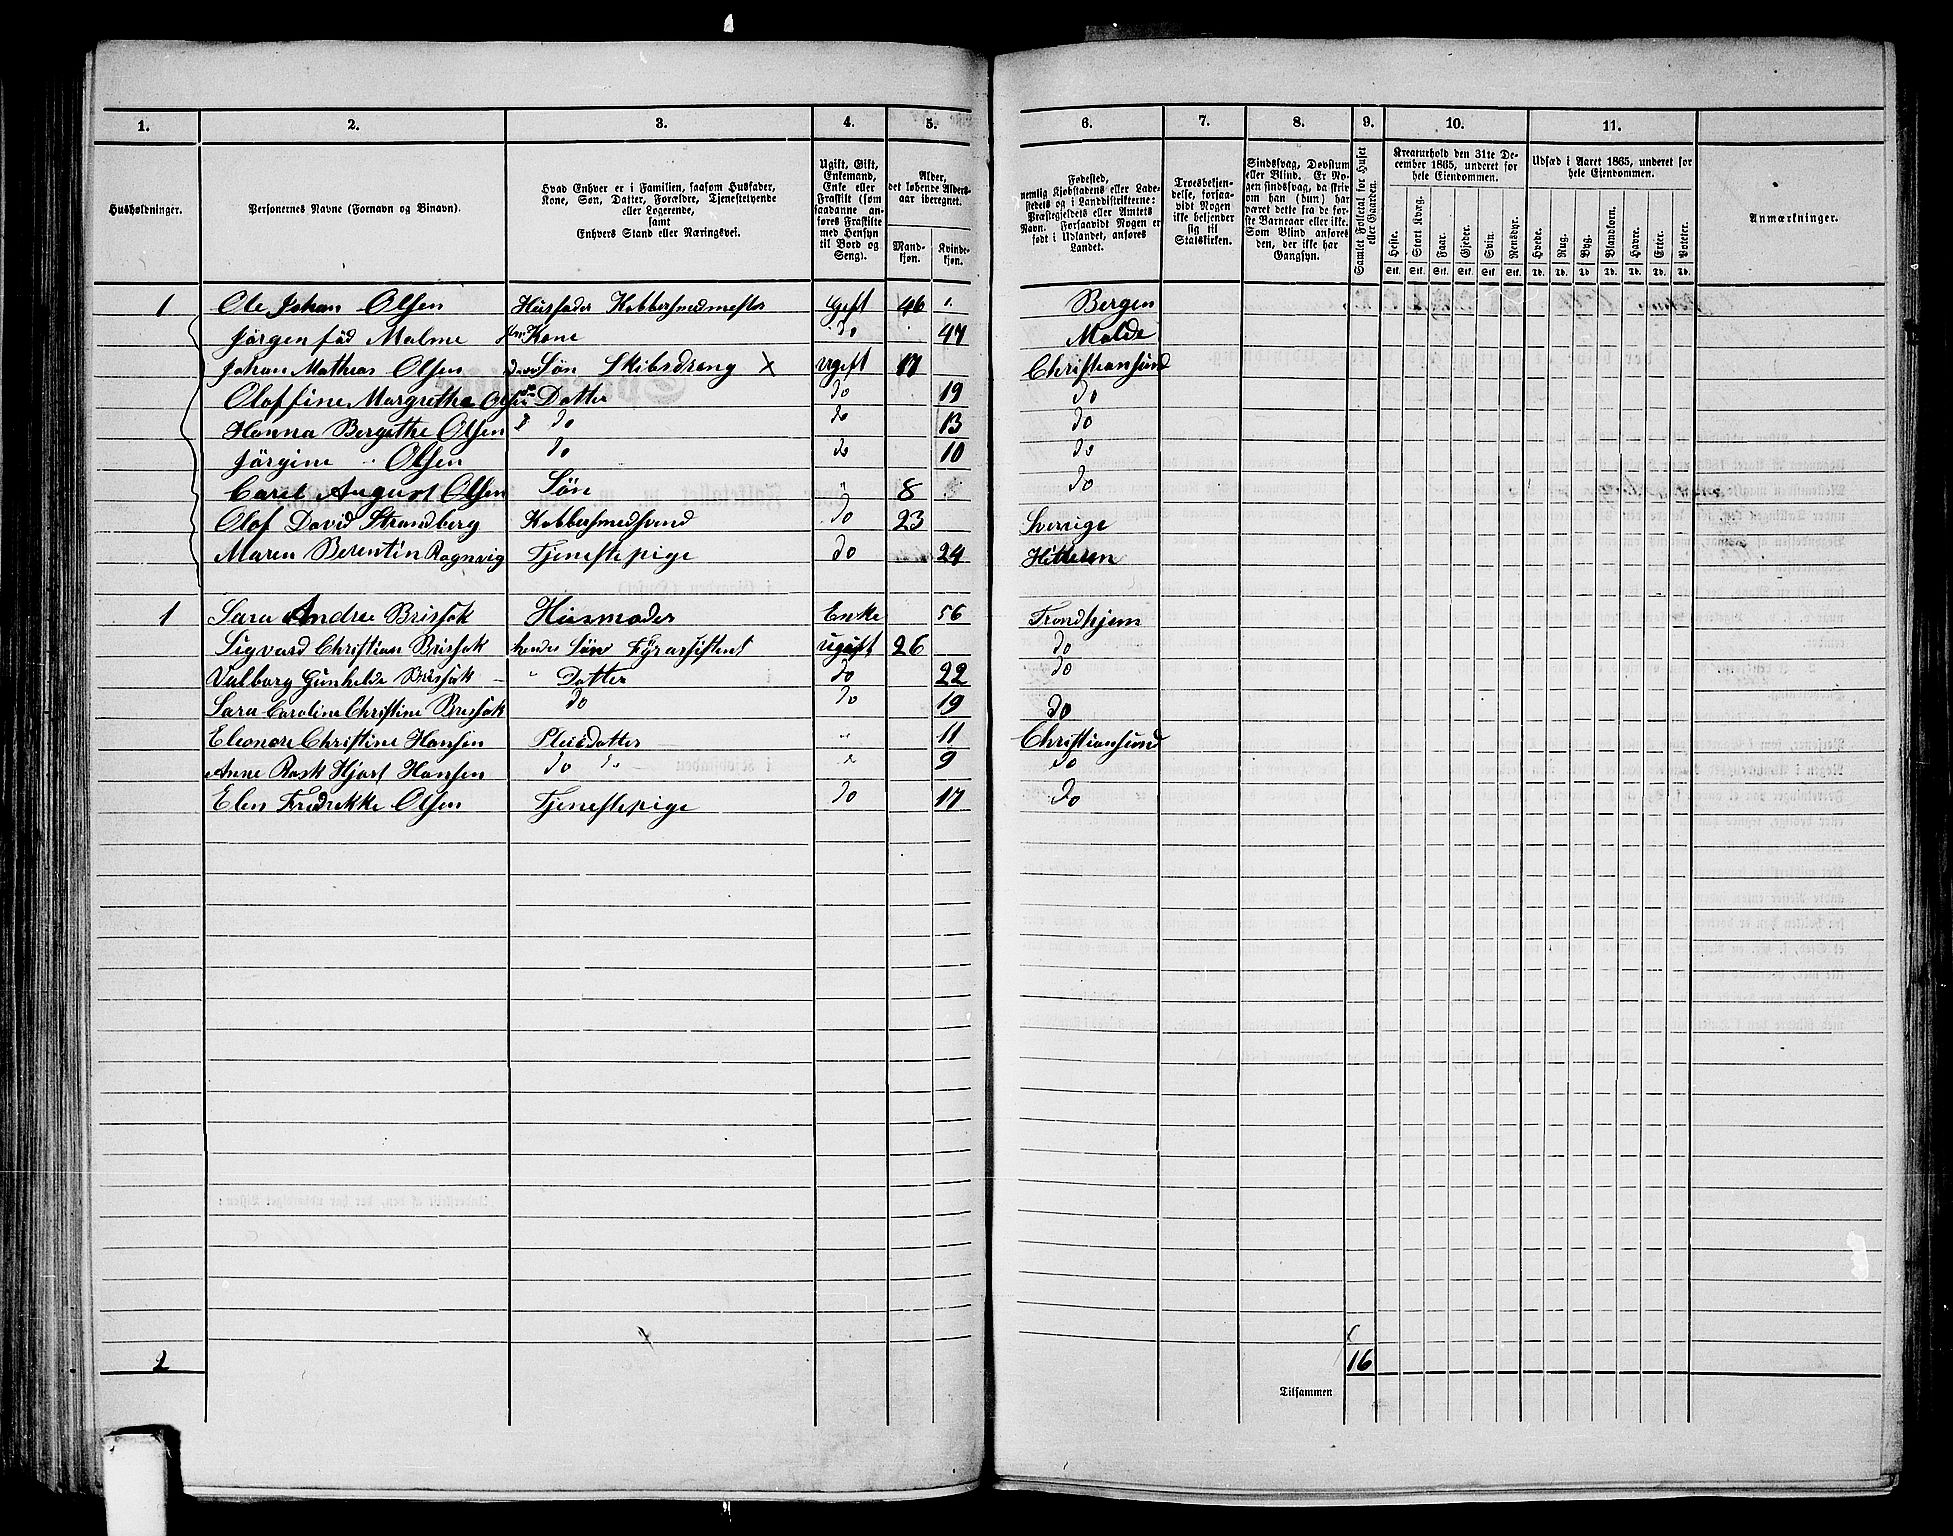 1. 2. 3. 4. 5. 6. 7. 8. 9. 10. 11.
Husholdninger.
Personernes Navne (Fornavn og Binavn).
Hvad Enhver er i Familien, saasom Husfader,
Kone, Søn, Datter, Forældre, Tjenestetyende
eller Logerende,
samt
Enhvers Stand eller Næringsvei.
Ugift, Gift,
Enkemand,
Enke eller
Fraskilt (som
saadanne an-
føres Fraskilte
med Hensyn
til Bord og
Seng).
Alder,
det løbende Alders-
aar iberegnet.
Mand-
kjøn.
Kvinde-
kjøn.
Fødested,
nemlig Kjøbstadens eller Lade-
stedets og i Landdistrikterne:
Præstegjeldets eller Amtets
Navn. Forsaavidt Nogen er
født i Udlandet, anføres
Landet.
Troesbekjen-
delse, forsaa-
vidt Nogen
ikke bekjender
sig til
Statskirken.
Sindssvag, Døvstum
eller Blind. Er No-
gen sindssvag, da skriv
om han (hun) har
været dette fra de før-
ste Barneaar eller ikke.
Som Blind anføres
den, der ikke har
Gangsyn.
Samlet Folketal for Huset
eller Gaarden.
Kreaturhold den 31te De-
cember 1865, underet for
hele Eiendommen.
Heste. Stort Kvæg. Faar. Gjeder. Svin. Rensdyr.
Stk. Stk. Stk. Stk. Stk. Stk.
Udsæd i Aaret 1865, underet for
hele Eiendommen.
Hvede. Rug. Byg. Blandkorn. Havre. Erter. Poteter.
Td. Td. Td. Td. Td. Td. Td.
Anmærkninger.
1 Ole Johan Olsen Husfader Kobbersmedmester Gift 46 Bergen
Jörgen föd Malme Kone do 47 Molde
Johan Mathias Olsen Søn Skibsdreng X Ugift 17 Christiansund
Oloffine Margrethe Olsen Datter do 19 do
Hanna Bergethe Olsen do do 13 do
Jörgine Olsen do do 10 do
Carel August Olsen Søn " 8 do
Olof David Strandberg Kobbersmedsvend do 23 Sverrige
Maren Berentin Rognvig Tjenestepige do 24 Hitteren
1 Sara Andrea Brissak Husmoder Enke 56 Trondhjem
Sigvard Christian Brissak hendes Søn Fyrassistent ugift 26 do
Valborg Gunhelde Brissak " Datter do 22 do
Sara Caroline Christine Brissak do do 19 do
Eleonore Christine Hansen Pleiedatter " 11 Christiansund
Anne Rask Hjort Hansen do do " 9 do
Elen Fredrekke Olsen Tjenestepige do 17 do
2 16
Tilsammen